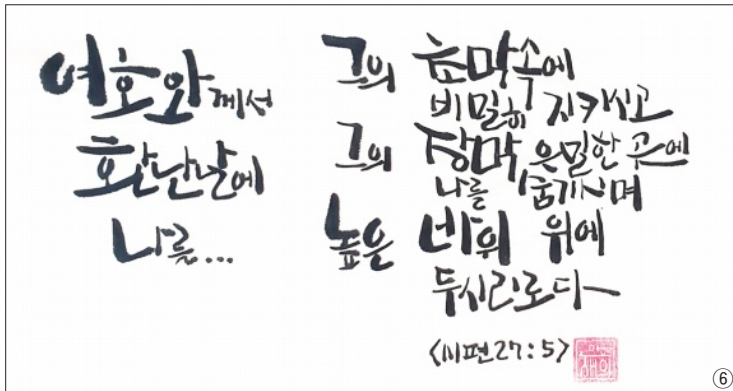 여호와께서
환난날에
나를...
그의 초막속에
비밀히 지키시고
그의 장막 은밀한 곳에
나를 숨기시며
높은 바위 위에
두시리로다
<시편27:5>
⑥